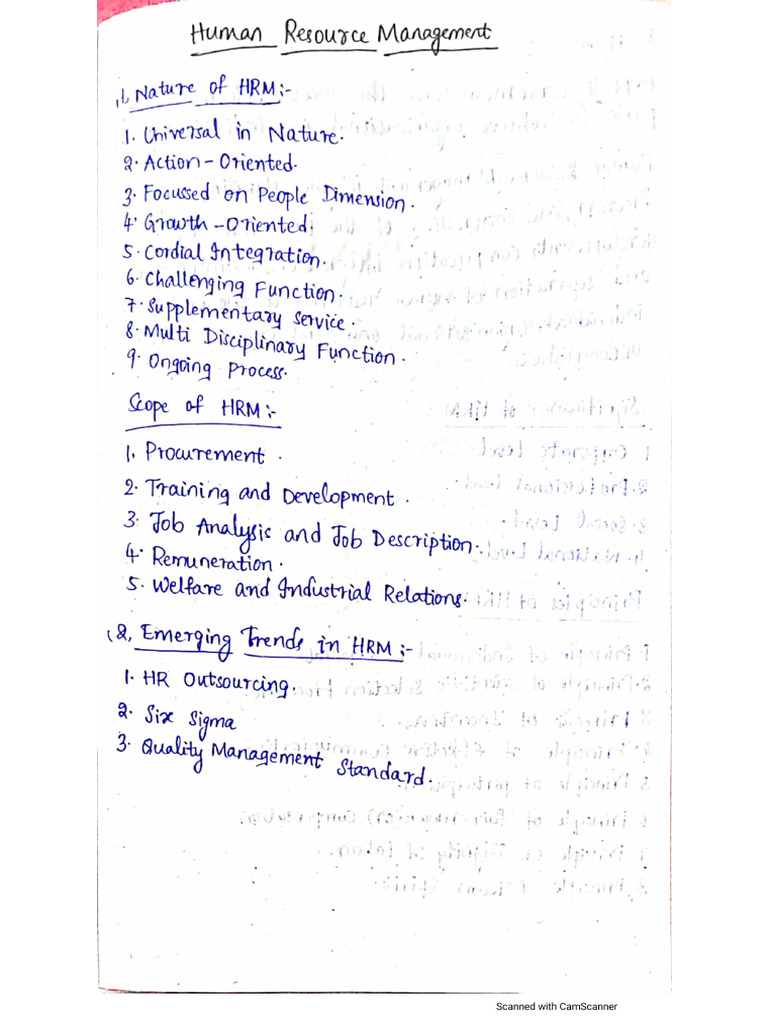 Human Resource Management
1, Nature of HRM:-
1. Universal in Nature.
2. Action-Oriented.
3. Focussed on People Dimension.
4. Growth-Oriented.
5. Cordial Integration.
6. Challenging Function.
7. Supplementary service.
8. Multi Disciplinary Function.
9. Ongoing Process.
Scope of HRM:-
1. Procurement.
2. Training and Development.
3. Job Analysis and Job Description.
4. Remuneration.
5. Welfare and Industrial Relations.
2, Emerging Trends in HRM:-
1. HR Outsourcing.
2. Six Sigma
3. Quality Management Standard.
Scanned with CamScanner